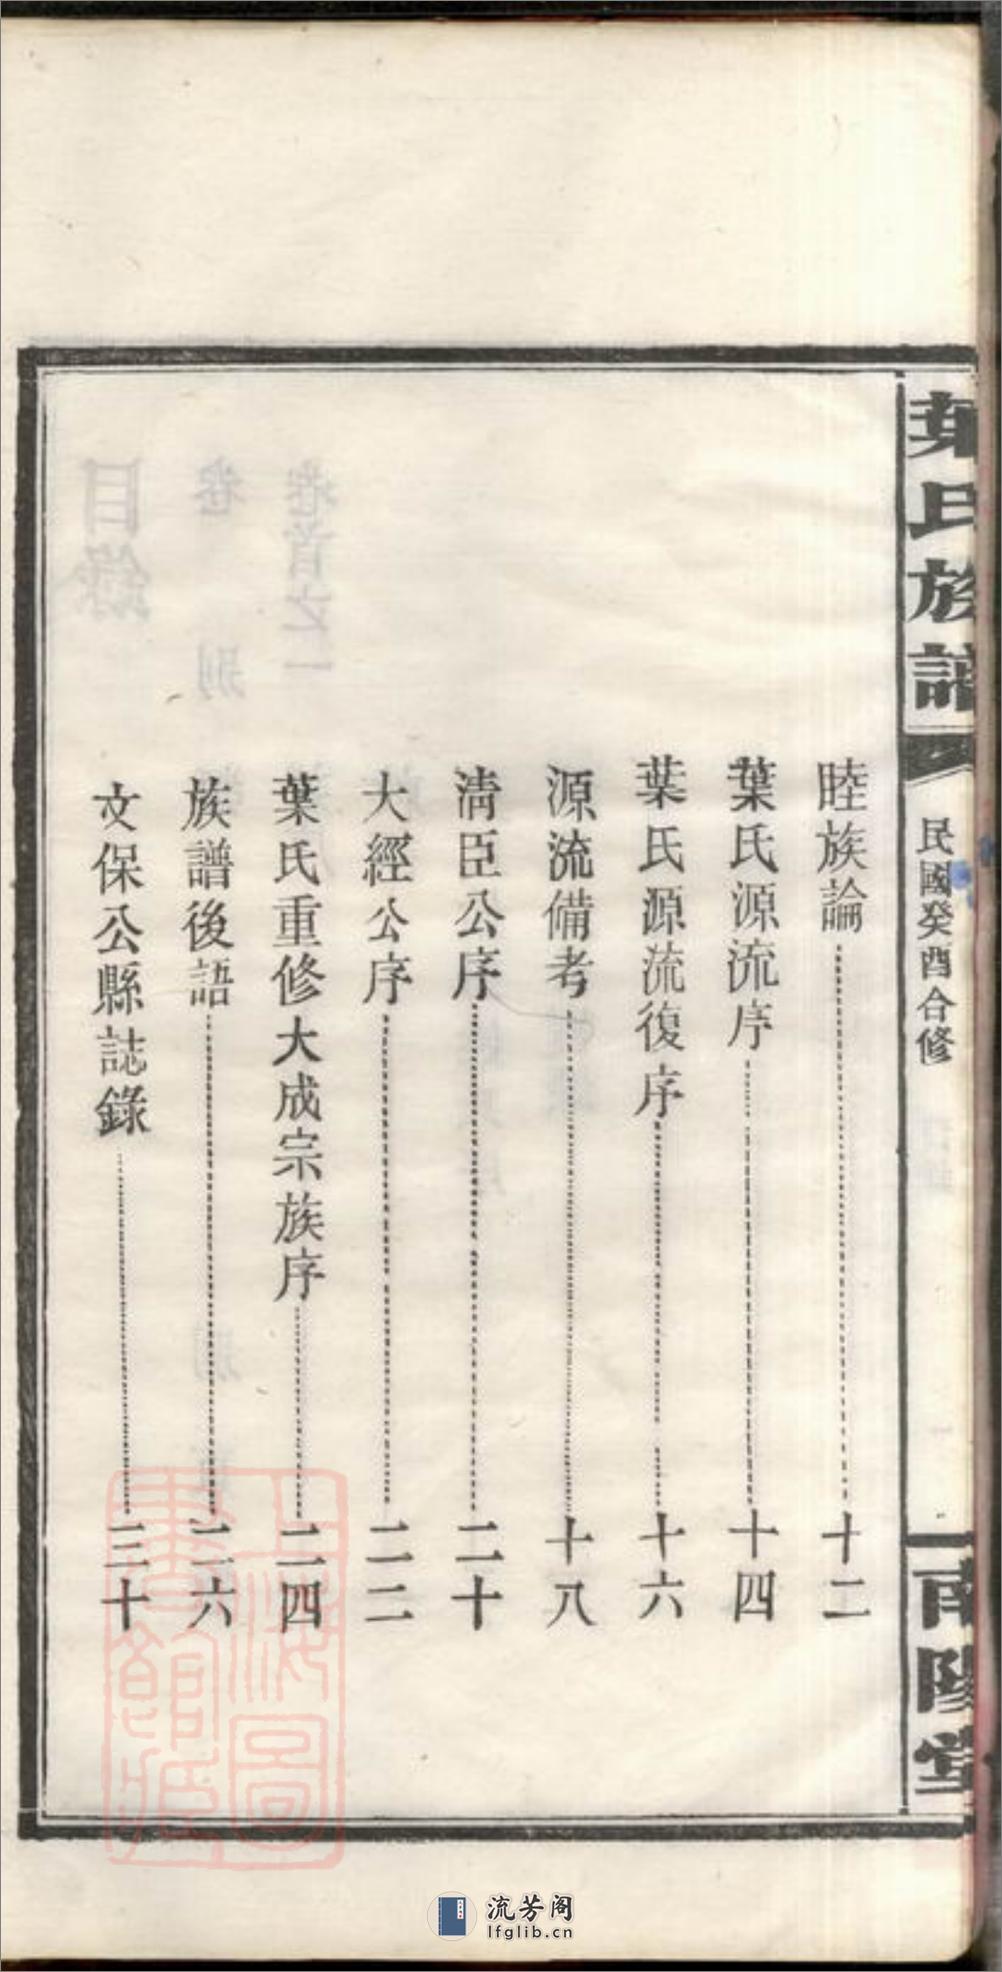 葉氏族譜
民國癸酉合修
南陽堂
睦族論 十二
葉氏源流序 十四
葉氏源流復序 十六
源流備考 十八
清臣公序 二十
大經公序 二二
葉氏重修大成宗族序 二四
族譜後語 二六
文保公縣誌錄 三十
上海圖書館藏
流芳阁
lfglib.cn